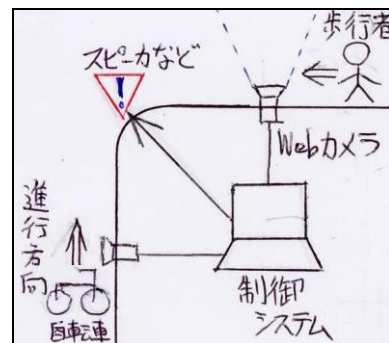 スピーカなど
!
歩行者
Webカメラ
進行方向
自転車
制御
システム